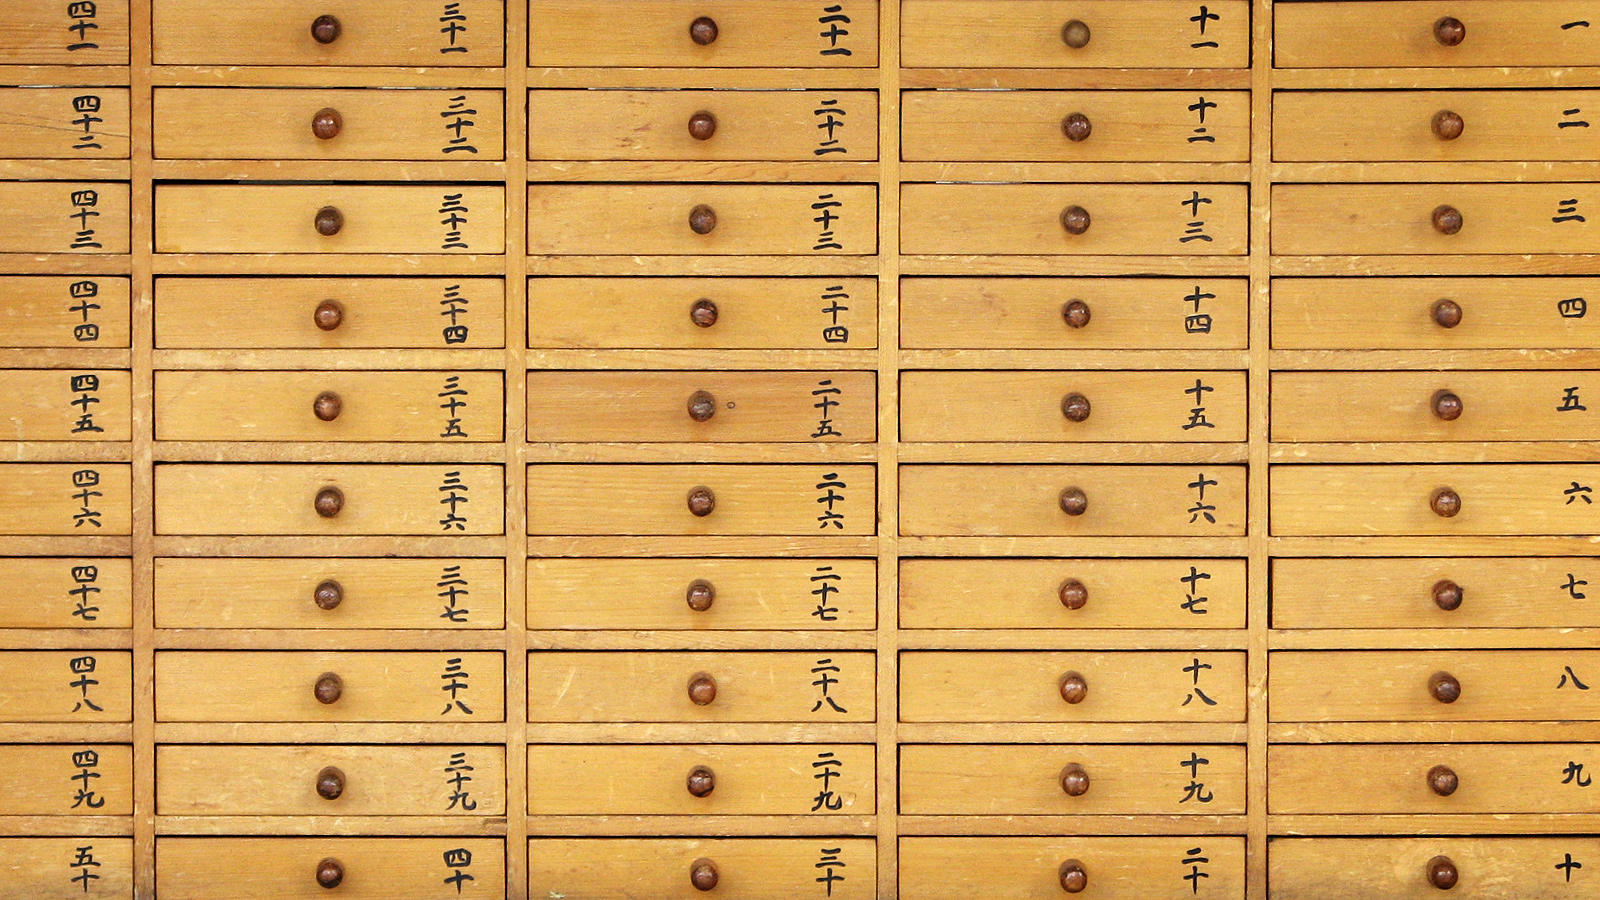 一
二
三
四
五
六
七
八
九
十
十一
十二
十三
十四
十五
十六
十七
十八
十九
二十
二十一
二十二
二十三
二十四
二十五
二十六
二十七
二十八
二十九
三十
三十一
三十二
三十三
三十四
三十五
三十六
三十七
三十八
三十九
四十
四十一
四十二
四十三
四十四
四十五
四十六
四十七
四十八
四十九
五十